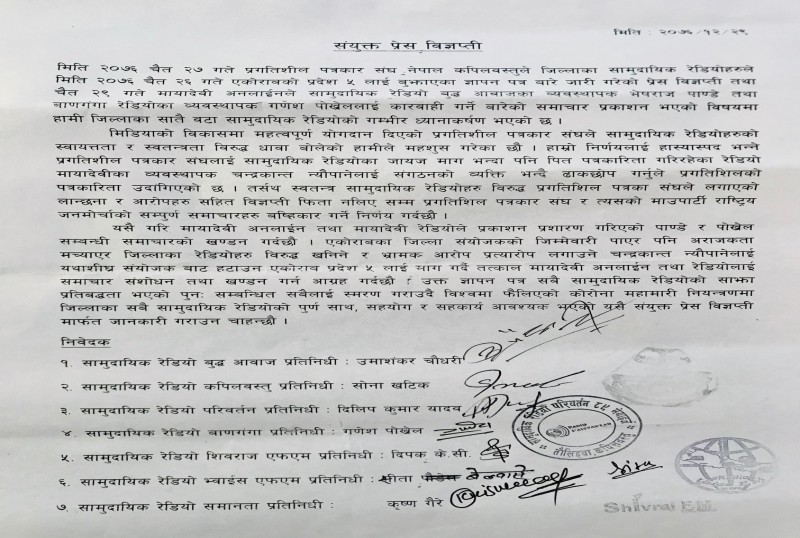 मिति : २०७६/१२/२९
संयुक्त प्रेस विज्ञप्ती
मिति २०७६ चैत २७ गते प्रगतिशील पत्रकार संघ नेपाल कपिलवस्तुले जिल्लाका सामुदायिक रेडियोहरुले
मिति २०७६ चैत २६ गते एकोरावको प्रदेश ५ लाई बुझाएका ज्ञापन पत्र बारे जारी गरेको प्रेस विज्ञप्ती तथा
चैत २९ गते मायादेवी अनलाईनले सामुदायिक रेडियो बुद्ध आवाजका व्यवस्थापक भेषराज पाण्डे तथा
बाणगंगा रेडियोका व्यवस्थापक गणेश पोखेललाई कारवाही गर्ने बारेको समाचार प्रकाशन भएको विषयमा
हामी जिल्लाका सातै वटा सामुदायिक रेडियोको गम्भीर ध्यानाकर्षण भएको छ ।
मिडियाको विकासमा महत्वपूर्ण योगदान दिएको प्रगतिशील पत्रकार संघले सामुदायिक रेडियोहरुको
स्वायत्तता र स्वतन्त्रता विरुद्ध धावा बोलेको हामीले महशुस गरेका छौ । हाम्रो निर्णयलाई हास्यास्पद भन्ने
प्रगतिशील पत्रकार संघलाई सामुदायिक रेडियोका जायज माग भन्दा पनि पित पत्रकारिता गरिरहेका रेडियो
मायादेवीका व्यवस्थापक चन्द्रकान्त न्यौपानेलाई संगठनको व्यक्ति भन्दै ढाकछोप गर्नुले प्रगतिशिलको
पत्रकारिता उदांगिएको छ । तर्सथ स्वतन्त्र सामुदायिक रेडियोहरु विरुद्ध प्रगतिशिल पत्रका संघले लगाएको
लान्छना र आरोपहरु सहित विज्ञप्ती फिता नलिए सम्म प्रगतिशील पत्रकार संघ र त्यसको माउपार्टी राष्ट्रिय
जनमोर्चाको सम्पुर्ण समाचारहरु बष्हिकार गर्ने निर्णय गर्दछौं ।
यसै गरि मायादेवी अनलाईन तथा मायादेवी रेडियोले प्रकाशन प्रशारण गरिएको पाण्डे र पोखेल
सम्बन्धी समाचारको खण्डन गर्दछौ । एकोरावका जिल्ला संयोजकको जिम्मेवारी पाएर पनि अराजकता
मच्चाएर जिल्लाका रेडियोहरु विरुद्ध खनिने र भ्रामक आरोप प्रत्यारोप लगाउने चन्द्रकान्त न्यौपानेलाई
यथाशीघ्र संयोजक बाट हटाउन एकोराव प्रदेश ५ लाई माग गर्दै तत्काल मायादेवी अनलाईन तथा रेडियोलाई
समाचार संशोधन तथा खण्डन गर्न आग्रह गर्दछौ । उक्त ज्ञापन पत्र सबै सामुदायिक रेडियोको साझा
प्रतिबद्धता भएको पुनः सम्बन्धित सबैलाई स्मरण गराउदै विश्वमा फैलिएको कोरोना महामारी नियन्त्रणमा
जिल्लाका सबै सामुदायिक रेडियोको पुर्ण साथ, सहयोग र सहकार्य आवश्यक भएको यसै संयुक्त प्रेस विज्ञप्ती
मार्फत जानकारी गराउन चाहन्छौ ।
निवेदक
१. सामुदायिक रेडियो बुद्ध आवाज प्रतिनिधी : उमाशंकर चौधरी
२. सामुदायिक रेडियो कपिलवस्तु प्रतिनिधी : सोना खटिक
३. सामुदायिक रेडियो परिवर्तन प्रतिनिधी : दिलिप कुमार यादव
४. सामुदायिक रेडियो बाणगंगा प्रतिनिधी : गणेश पोखेल
५. सामुदायिक रेडियो शिवराज एफएम प्रतिनिधी : दिपक के.सी.
६. सामुदायिक रेडियो भ्वाईस एफएम प्रतिनिधी : सीता
७. सामुदायिक रेडियो समानता प्रतिनिधी : कृष्ण गैरे
Shivraj F.M.